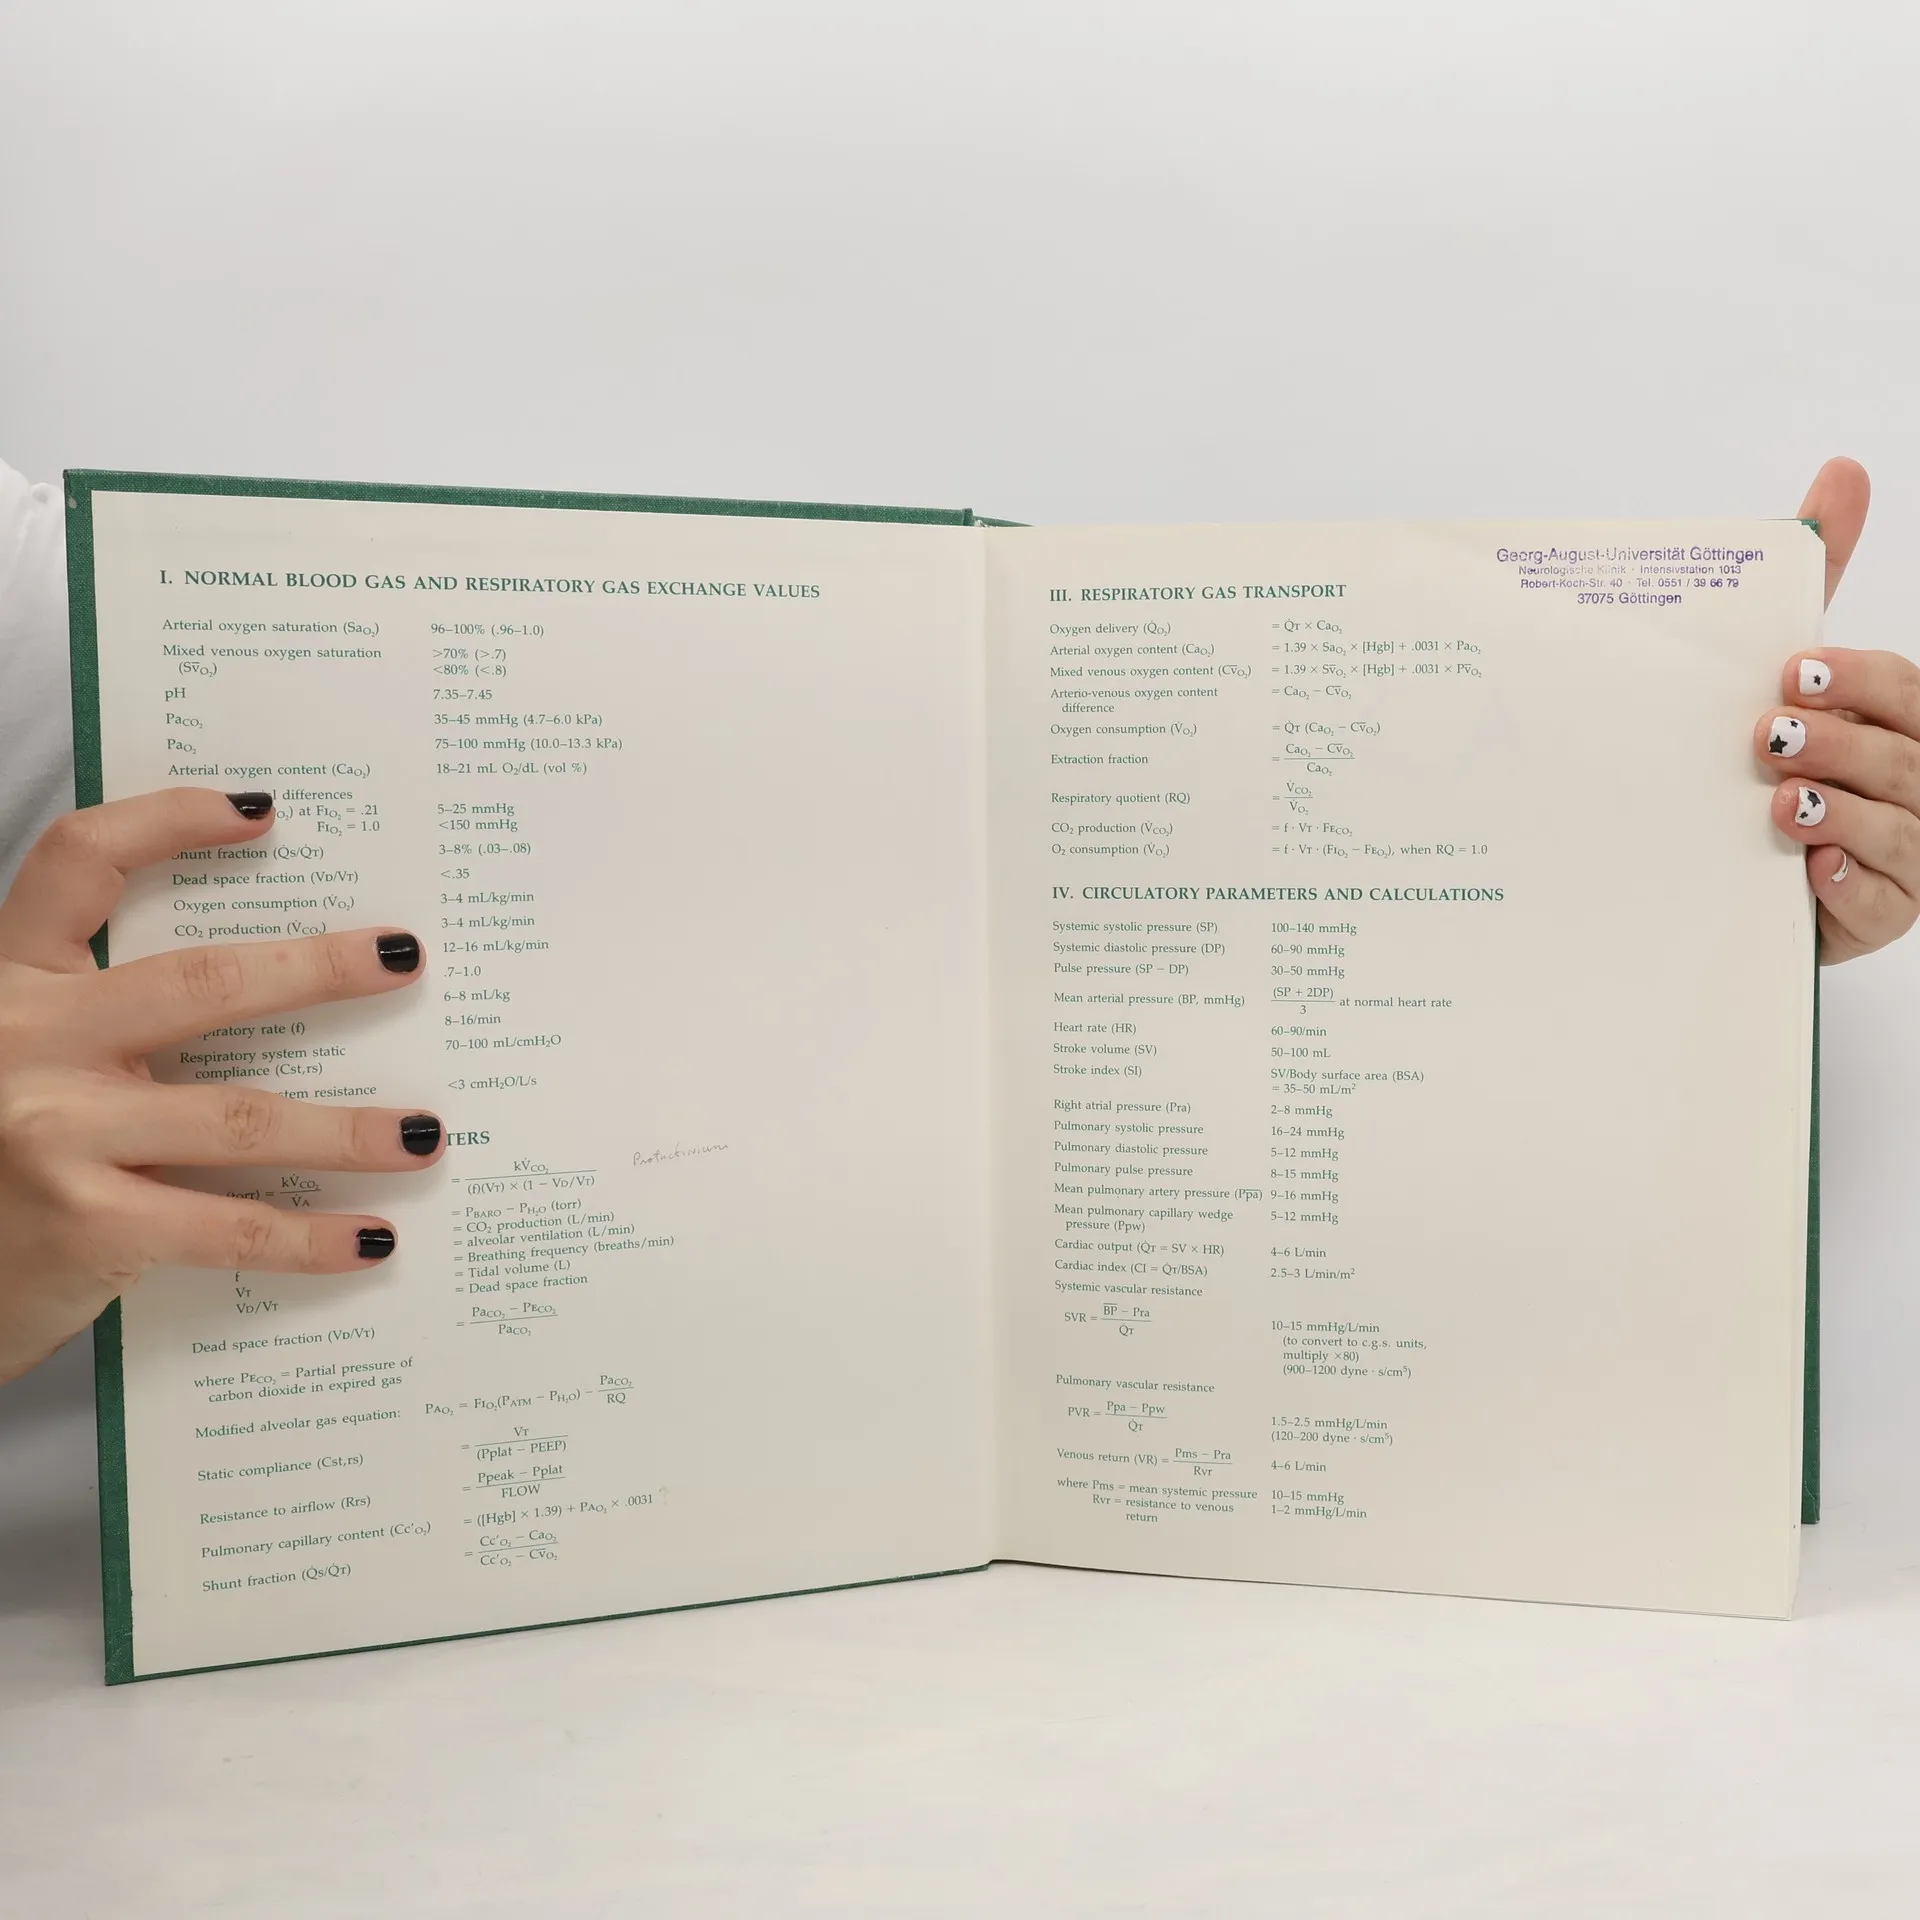 I. NORMAL BLOOD GAS AND RESPIRATORY GAS EXCHANGE VALUES
Arterial oxygen saturation (SaO₂) 96–100% (.96–1.0)
Mixed venous oxygen saturation >70% (>.7)
(Sv̄O₂) <80% (<.8)
pH 7.35–7.45
PaCO₂ 35–45 mmHg (4.7–6.0 kPa)
PaO₂ 75–100 mmHg (10.0–13.3 kPa)
Arterial oxygen content (CaO₂) 18–21 mL O₂/dL (vol %)
differences
O₂) at FIO₂ = .21 5–25 mmHg
FIO₂ = 1.0 <150 mmHg
Shunt fraction (Q̇s/Q̇T) 3–8% (.03–.08)
Dead space fraction (VD/VT) <.35
Oxygen consumption (V̇O₂) 3–4 mL/kg/min
CO₂ production (V̇CO₂) 3–4 mL/kg/min
12–16 mL/kg/min
.7–1.0
6–8 mL/kg
piratory rate (f) 8–16/min
Respiratory system static 70–100 mL/cmH₂O
compliance (Cst,rs)
stem resistance <3 cmH₂O/L/s
TERS
(torr) = kV̇CO₂ / V̇A = kV̇CO₂ / (f)(VT) × (1 − VD/VT)
= PBARO − PH₂O (torr)
= CO₂ production (L/min)
= alveolar ventilation (L/min)
f = Breathing frequency (breaths/min)
VT = Tidal volume (L)
VD/VT = Dead space fraction
Dead space fraction (VD/VT) = PaCO₂ − PECO₂ / PaCO₂
where PECO₂ = Partial pressure of
carbon dioxide in expired gas
Modified alveolar gas equation: PAO₂ = FIO₂(PATM − PH₂O) − PaCO₂ / RQ
Static compliance (Cst,rs) = V̇T / (Pplat − PEEP)
Resistance to airflow (Rrs) = Ppeak − Pplat / FLOW
Pulmonary capillary content (Cc'O₂) = ([Hgb] × 1.39) + PAO₂ × .0031
Shunt fraction (Q̇s/Q̇T) = Cc'O₂ − CaO₂ / Cc'O₂ − Cv̄O₂
Georg-August-Universität Göttingen
Neurologische Klinik · Intensivstation 1013
Robert-Koch-Str. 40 · Tel. 0551 / 39 66 79
37075 Göttingen
III. RESPIRATORY GAS TRANSPORT
Oxygen delivery (Q̇O₂) = Q̇T × CaO₂
Arterial oxygen content (CaO₂) = 1.39 × SaO₂ × [Hgb] + .0031 × PaO₂
Mixed venous oxygen content (Cv̄O₂) = 1.39 × Sv̄O₂ × [Hgb] + .0031 × Pv̄O₂
Arterio-venous oxygen content = CaO₂ − Cv̄O₂
difference
Oxygen consumption (V̇O₂) = Q̇T (CaO₂ − Cv̄O₂)
Extraction fraction = CaO₂ − Cv̄O₂ / CaO₂
Respiratory quotient (RQ) = V̇CO₂ / V̇O₂
CO₂ production (V̇CO₂) = f · VT · FECO₂
O₂ consumption (V̇O₂) = f · VT · (FIO₂ − FEO₂), when RQ = 1.0
IV. CIRCULATORY PARAMETERS AND CALCULATIONS
Systemic systolic pressure (SP) 100–140 mmHg
Systemic diastolic pressure (DP) 60–90 mmHg
Pulse pressure (SP − DP) 30–50 mmHg
Mean arterial pressure (BP, mmHg) (SP + 2DP) / 3 at normal heart rate
Heart rate (HR) 60–90/min
Stroke volume (SV) 50–100 mL
Stroke index (SI) SV/Body surface area (BSA)
= 35–50 mL/m²
Right atrial pressure (Pra) 2–8 mmHg
Pulmonary systolic pressure 16–24 mmHg
Pulmonary diastolic pressure 5–12 mmHg
Pulmonary pulse pressure 8–15 mmHg
Mean pulmonary artery pressure (P̄p̄ā) 9–16 mmHg
Mean pulmonary capillary wedge 5–12 mmHg
pressure (Ppw)
Cardiac output (Q̇T = SV × HR) 4–6 L/min
Cardiac index (CI = Q̇T/BSA) 2.5–3 L/min/m²
Systemic vascular resistance
SVR = B̄P̄ − Pra / Q̇T 10–15 mmHg/L/min
(to convert to c.g.s. units,
multiply ×80)
(900–1200 dyne · s/cm⁵)
Pulmonary vascular resistance
PVR = Ppa − Ppw / Q̇T 1.5–2.5 mmHg/L/min
(120–200 dyne · s/cm⁵)
Venous return (VR) = Pms − Pra / Rvr 4–6 L/min
where Pms = mean systemic pressure 10–15 mmHg
Rvr = resistance to venous 1–2 mmHg/L/min
return